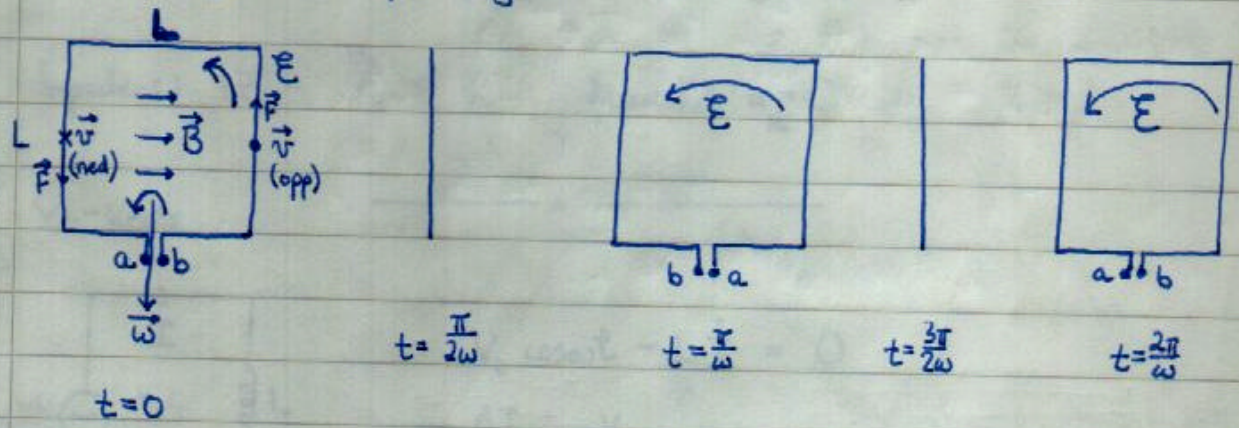 L
ℰ
F⃗
L v⃗ B⃗ v⃗
F⃗ (ned) (opp)
a b
ω⃗
t=0
t= π/2ω
ℰ
b a
t= π/ω
t= 3π/2ω
ℰ
a b
t= 2π/ω